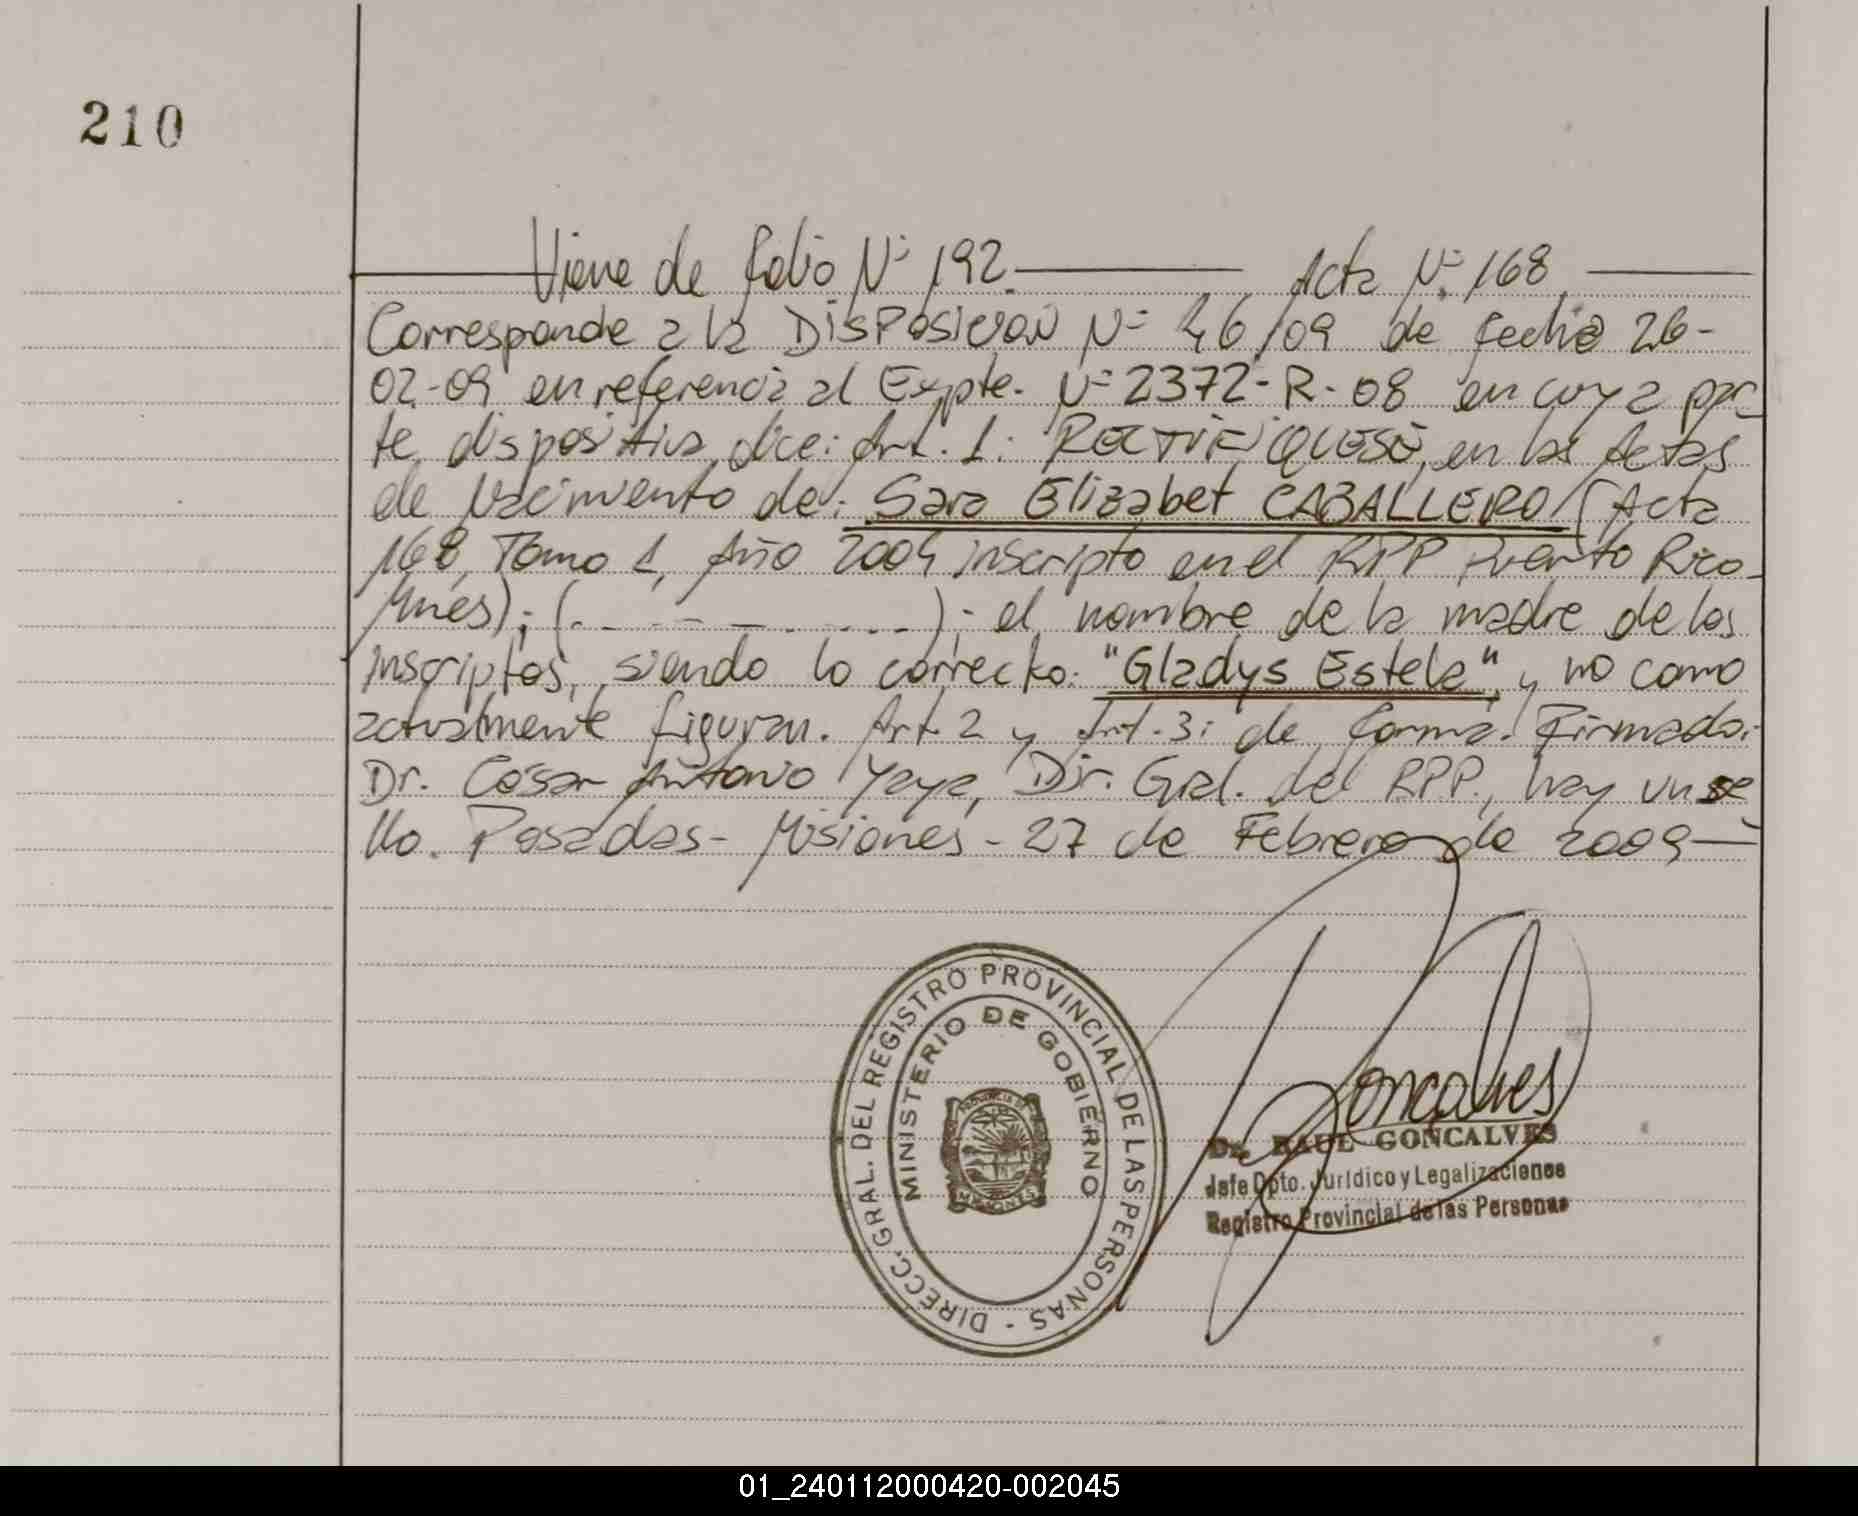 210
Viene de folio Nº 192. Acta Nº 168
Corresponde a la DISPOSICION Nº 46/09 de fecha 26-
02-09 en referencia al Expte. Nº 2372-R-08 en cuya par-
te dispositiva dice: Art. 1: RECTIFIQUESE, en las Actas
de Nacimiento de: Sara Elizabet CABALLERO (Acta
168, Tomo 1, Año 2004 inscripto en el RPP Puerto Rico-
Mnes); (- - - - - - - - -); el nombre de la madre de los
inscriptos, siendo lo correcto: "Gladys Estela", y no como
actualmente figuran. Art. 2 y Art. 3: de forma. Firmado:
Dr. César Antonio Yaya, Dir. Gral. del RPP., hay un se
llo. Posadas - Misiones - 27 de Febrero de 2009
DIRECC. GRAL. DEL REGISTRO PROVINCIAL DE LAS PERSONAS -
MINISTERIO DE GOBIERNO
PROVINCIA DE
MISIONES
Goncalves
Dr. RAUL GONCALVES
Jefe Dpto. Jurídico y Legalizaciones
Registro Provincial de las Personas
01_240112000420-002045